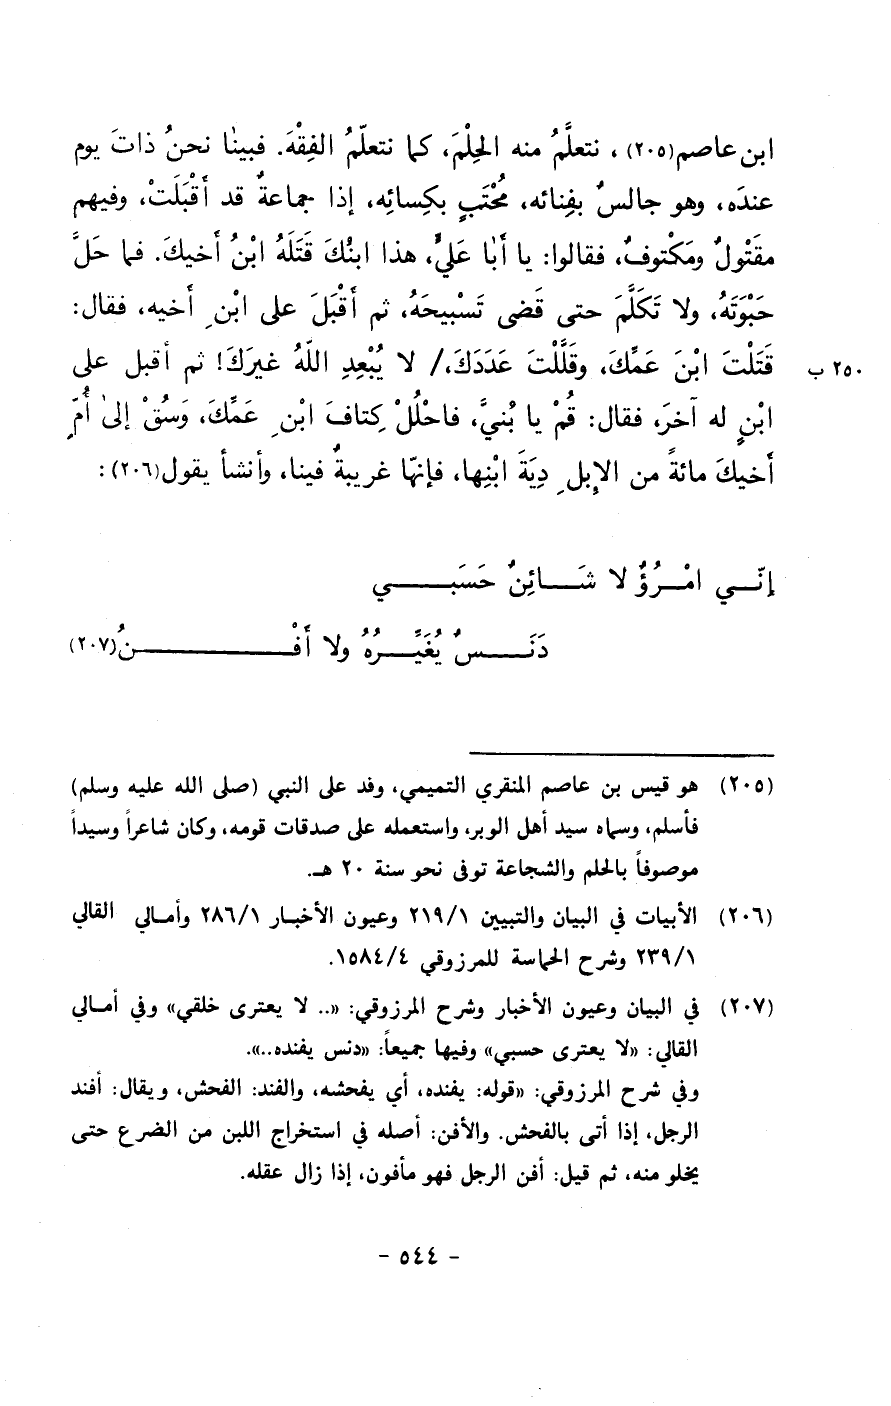 ابن عاصم(٢٠٥) ، نتعلَّمُ منه الحِلْمَ، كما نتعلّمُ الفِقْهَ. فبينا نحنُ ذاتَ يوم
عندَه، وهو جالسٌ بفِنائه، مُحْتَبٍ بكِسائِه، إذا جماعةٌ قد أقْبَلَتْ، وفيهم
مقَتْولٌ ومَكْتوفٌ، فقالوا: يا أَبا عَليٍّ، هذا ابنُكَ قَتَلَهُ ابْنُ أخيكَ. فما حَلَّ
حَبْوَتَهُ، ولا تَكَلَّمَ حتى قَضى تَسْبيحَهُ، ثم أَقْبَلَ على ابْنِ أخيه، فقال:
قَتَلْتَ ابْنَ عَمِّكَ، وقَلَّلْتَ عَدَدَكَ،/ لا يُبْعِدِ اللّهُ غيرَكَ! ثم أقبل على ٢٥٠ ب
ابْنٍ له آخرَ، فقال: قُمْ يا بُنيَّ، فاحْلُلْ كِتافَ ابْنِ عَمِّكَ، وَسُقْ إلىٰ أُمِّ
أَخيكَ مائةً من الإبِلِ دِيَةَ ابْنِها، فإنهّا غريبةٌ فينا، وأنشأ يقول(٢٠٦):
إنّـي امْـرُؤٌ لا شَـائِنٌ حَسَبـي
دَنَـسٌ يُغَيِّـرُهُ ولا أَفْـنُ(٢٠٧)
(٢٠٥) هو قيس بن عاصم المنقري التميمي، وفد على النبي (صلى الله عليه وسلم)
فأسلم، وسماه سيد أهل الوبر، واستعمله على صدقات قومه، وكان شاعراً وسيداً
موصوفاً بالحلم والشجاعة توفى نحو سنة ٢٠ هـ.
(٢٠٦) الأبيات في البيان والتبيين ٢١٩/١ وعيون الأخبـار ٢٨٦/١ وأمـالي القالي
٢٣٩/١ وشرح الحماسة للمرزوقي ١٥٨٤/٤.
(٢٠٧) في البيان وعيون الأخبار وشرح المرزوقي: «.. لا يعترى خلقي» وفي أمـالي
القالي: «لا يعترى حسبي» وفيها جميعاً: «دنس يفنده..».
وفي شرح المرزوقي: «قوله: يفنده، أي يفحشه، والفند: الفحش، ويقال: أفند
الرجل، إذا أتى بالفحش. والأفن: أصله في استخراج اللبن من الضرع حتى
يخلو منه، ثم قيل: أفن الرجل فهو مأفون، إذا زال عقله.
- ٥٤٤ -